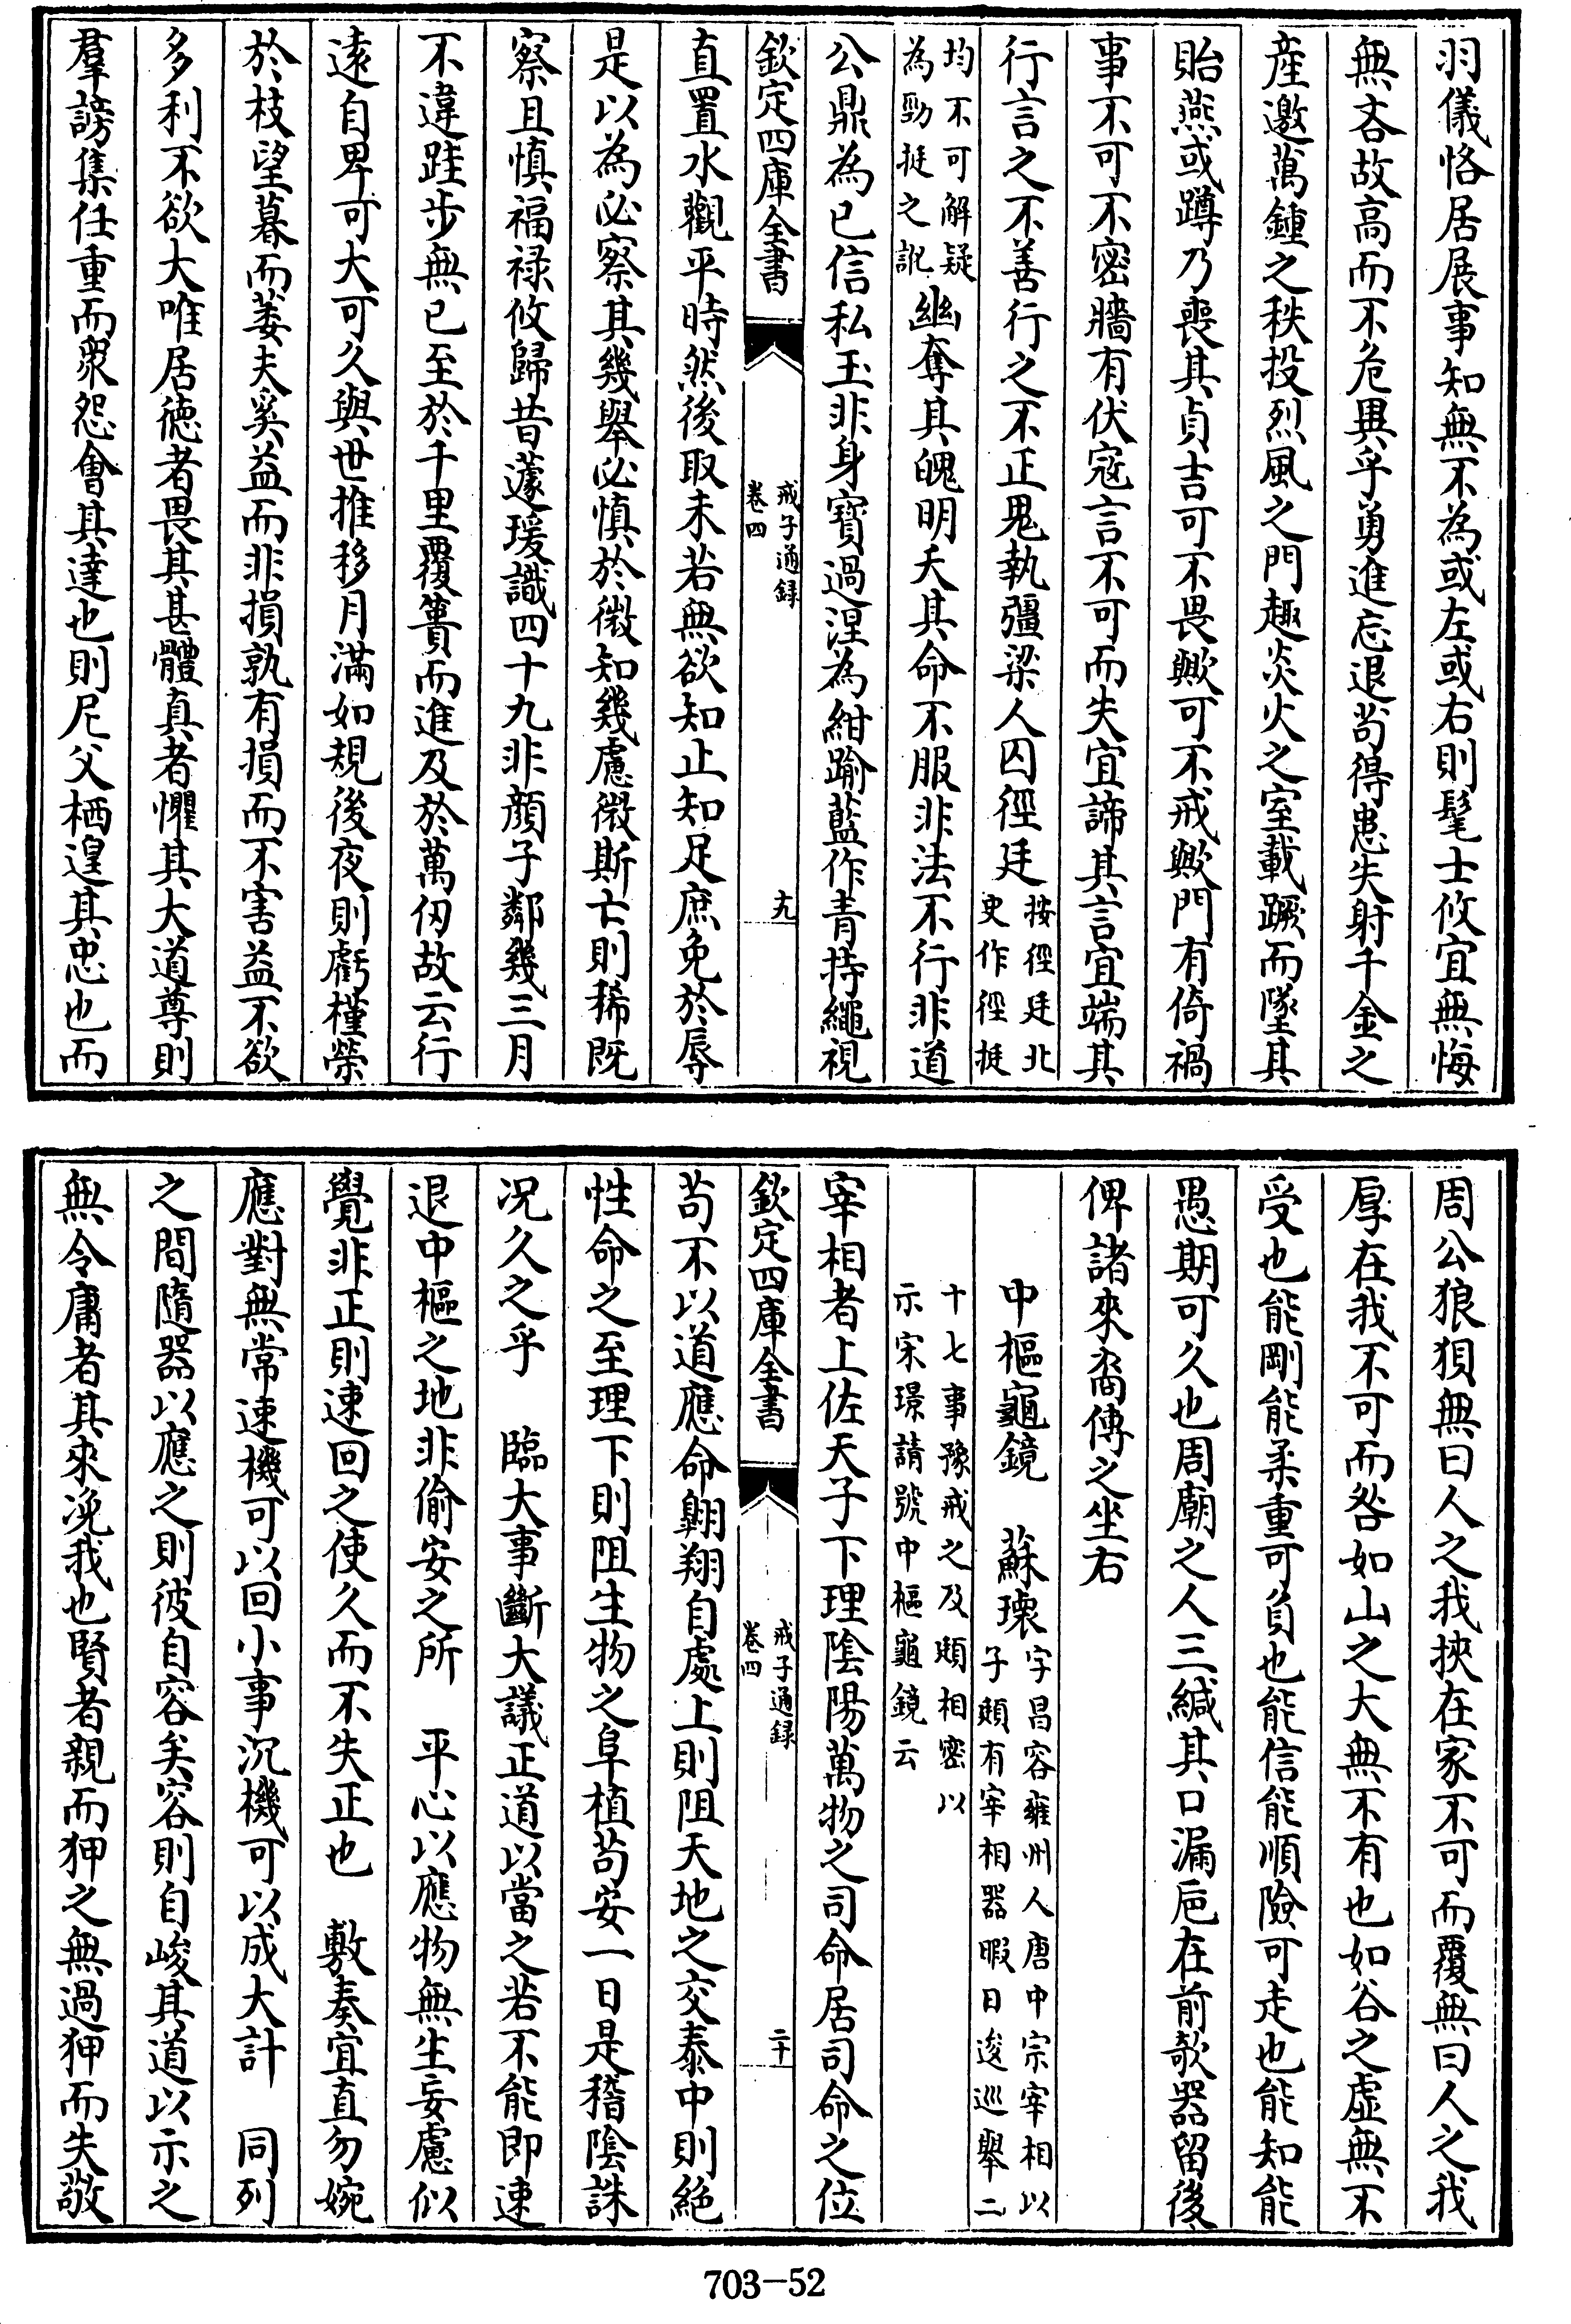 羽儀恪居展事知無不為或左或右則髦士攸宜無悔
無吝故高而不危異乎勇進忘退茍得患失射千金之
産邀萬鍾之秩投烈風之門趣炎火之室載蹶而墜其
貽燕或蹲乃喪其貞吉可不畏歟可不戒歟門有倚禍
事不可不密牆有伏寇言不可而失宜諦其言宜端其
行言之不善行之不正鬼執彊梁人囚徑廷按徑廷北史作徑挺
均不可解疑為勁挺之訛幽奪其魄明夭其命不服非法不行非道
公鼎為已信私玉非身寶過涅為紺踰藍作青持繩視
欽定四庫全書
戒子通録
卷四
十九
直置水觀平時然後取未若無欲知止知足庶免於辱
是以為必察其幾舉必慎於微知幾慮微斯亡則稀既
察且慎福禄攸歸昔蘧瑗識四十九非顔子鄰幾三月
不違跬步無已至於千里覆簣而進及於萬仞故云行
逺自卑可大可久與世推移月滿如規後夜則虧槿榮
於枝望暮而萎夫奚益而非損孰有損而不害益不欲
多利不欲大唯居徳者畏其甚體真者懼其大道尊則
羣謗集任重而衆怨會其達也則尼父栖遑其忠也而
周公狼狽無曰人之我挾在家不可而覆無曰人之我
厚在我不可而咎如山之大無不有也如谷之虚無不
受也能剛能柔重可負也能信能順險可走也能知能
愚期可久也周廟之人三緘其口漏巵在前欹器留後
俾諸來裔傳之坐右
中樞龜鏡　蘇瓌字昌容雍州人唐中宗宰相以子頲有宰相器暇日逡巡舉二
十七事豫戒之及頲相密以示宋璟請號中樞龜鏡云
宰相者上佐天子下理陰陽萬物之司命居司命之位
欽定四庫全書
戒子通録
卷四
二十
茍不以道應命翺翔自處上則阻天地之交泰中則絶
性命之至理下則阻生物之阜植茍安一日是稽陰誅
况久之乎　臨大事斷大議正道以當之若不能即速
退中樞之地非偷安之所　平心以應物無生妄慮似
覺非正則速回之使久而不失正也　敷奏宜直勿婉
應對無常速機可以回小事沉機可以成大計　同列
之間隨器以應之則彼自容矣容則自峻其道以示之
無令庸者其來浼我也賢者親而狎之無過狎而失敬
703-52